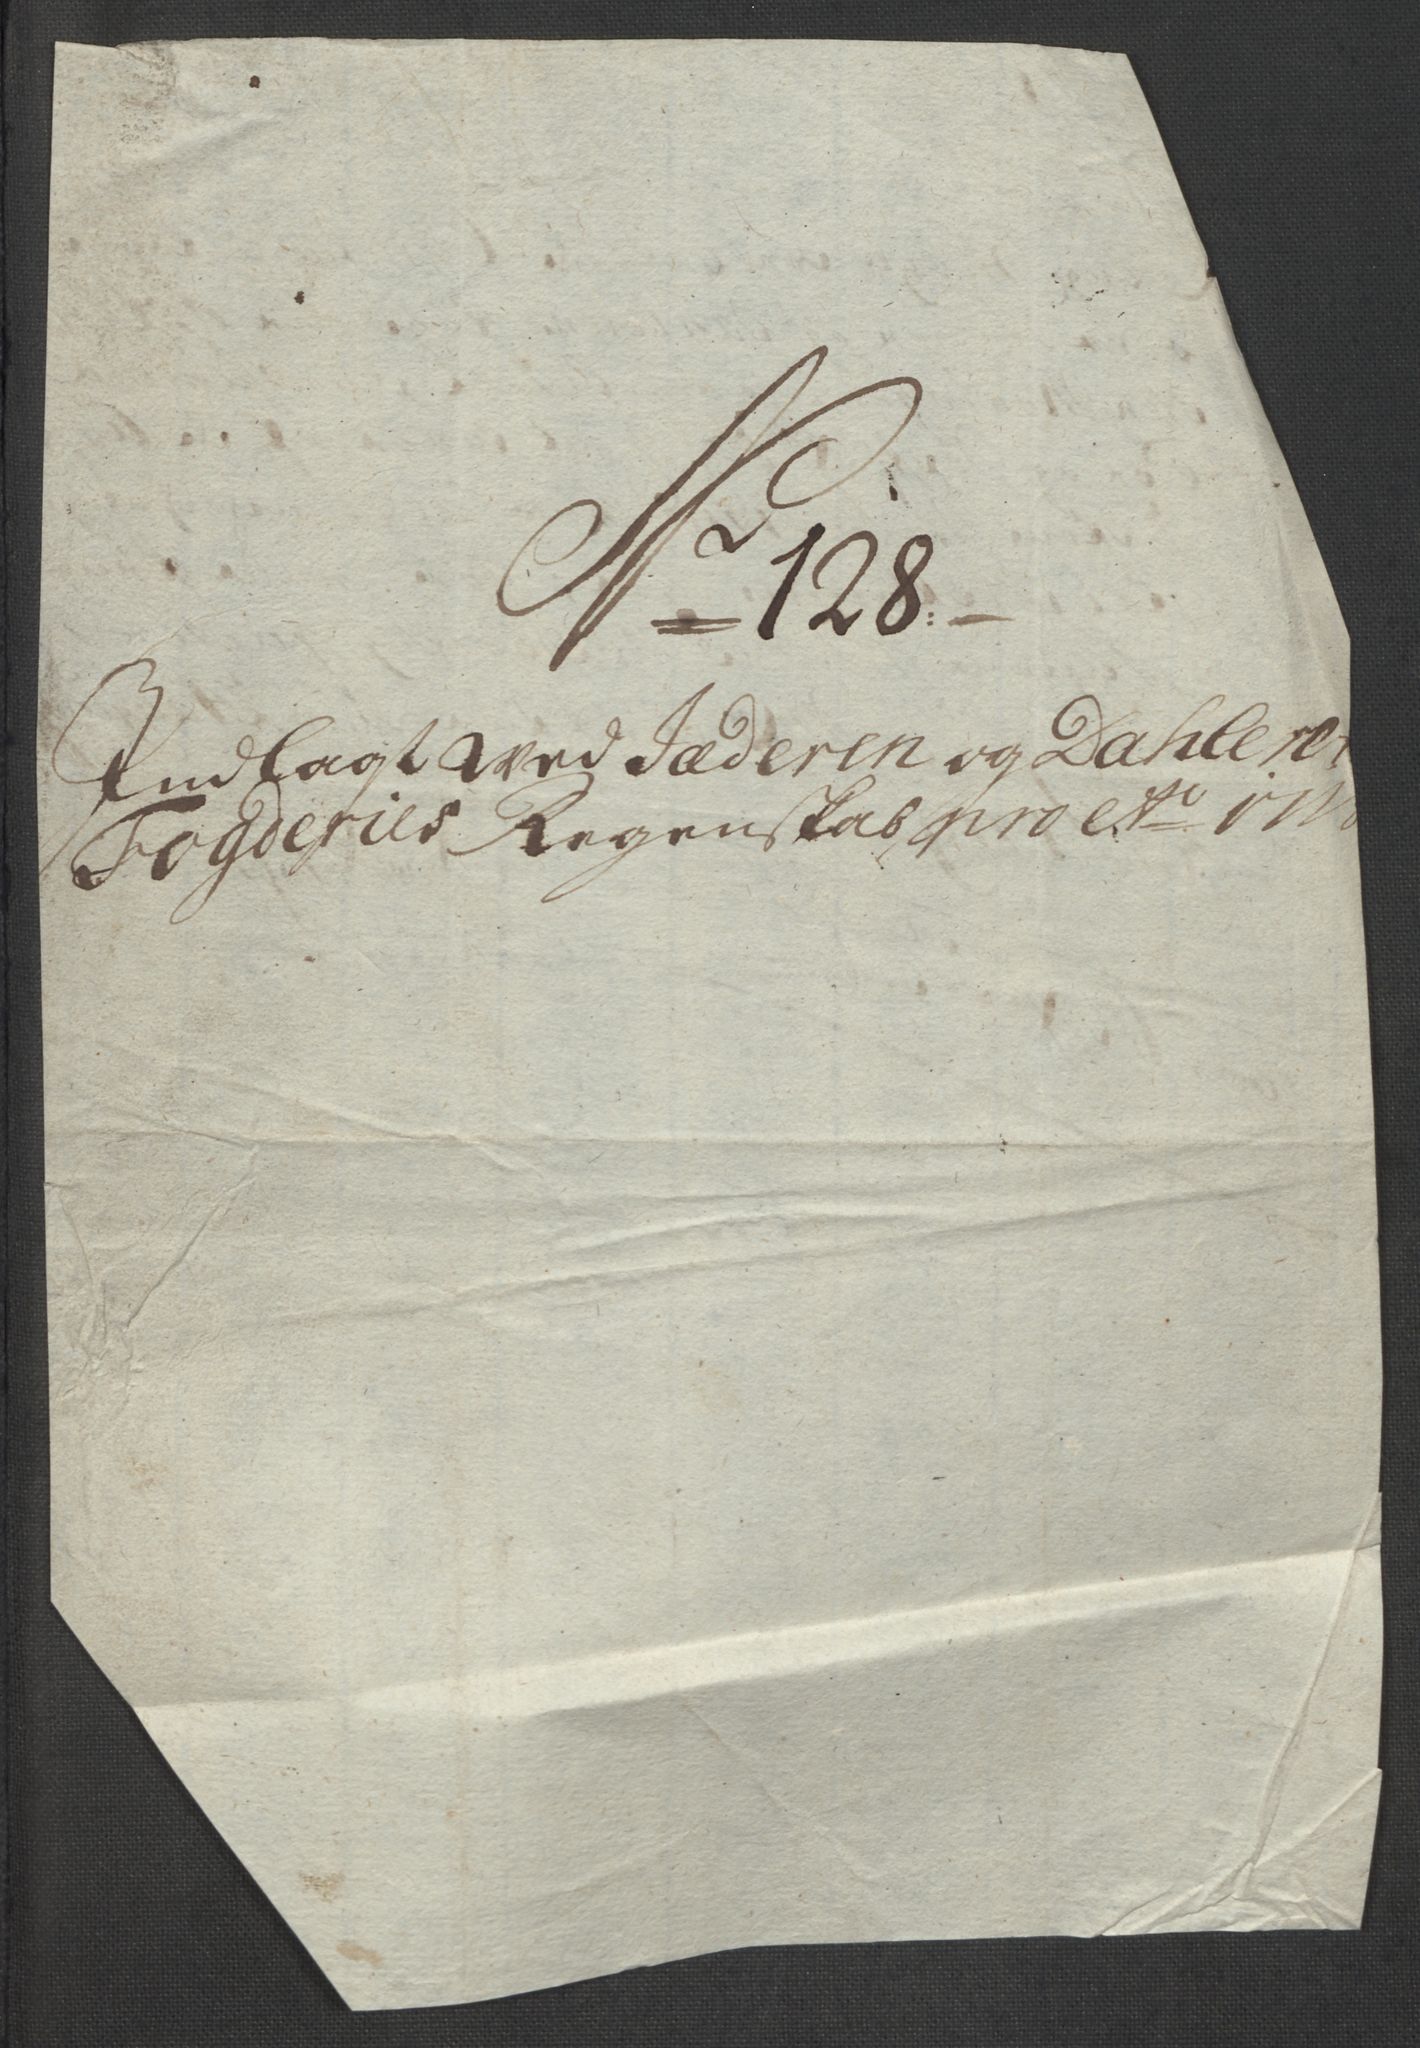 No 128.
Indlagt wed Jæderen og Dahlerne
Fogderies Regenskab pro Ao